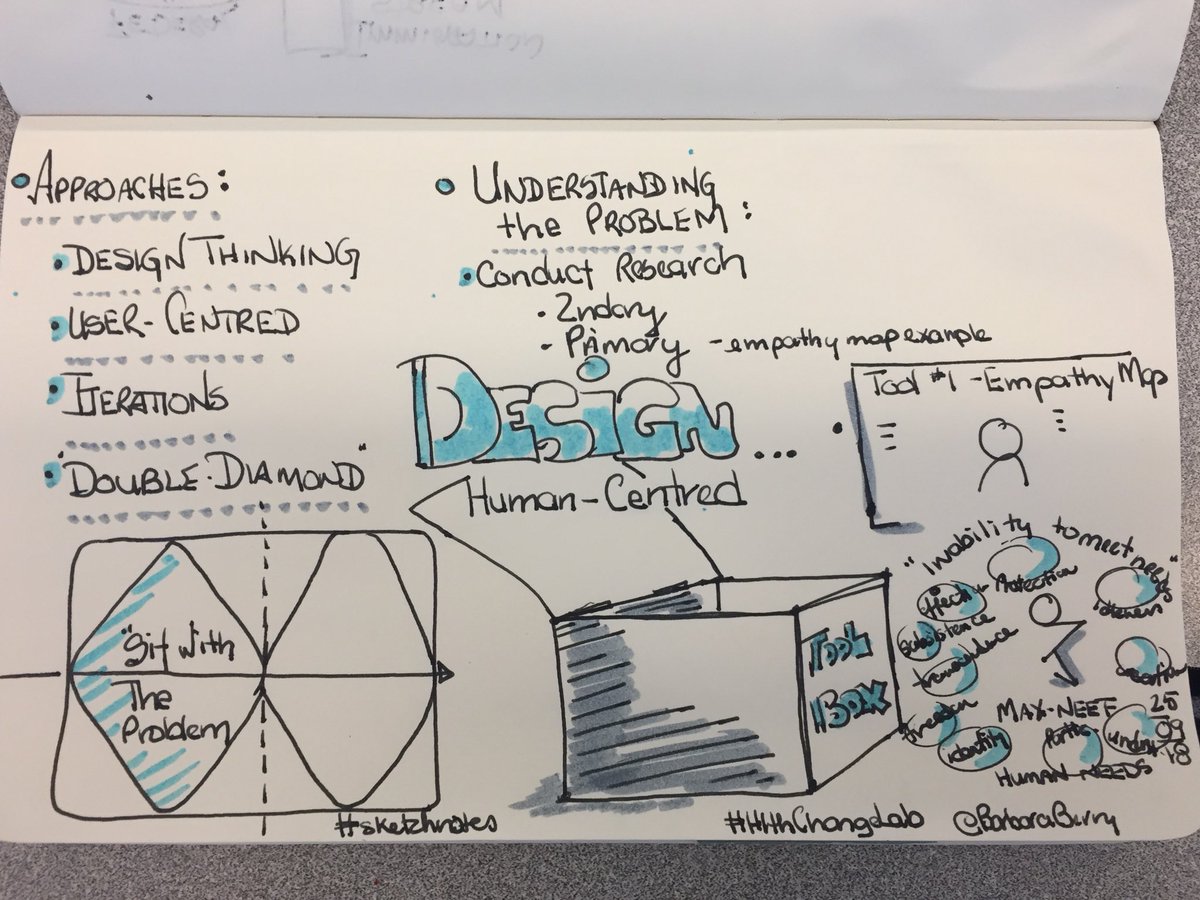 APPROACHES:
DESIGN THINKING
USER-CENTRED
ITERATIONS
"DOUBLE-DIAMOND"
"Sit with
The
Problem
#sketchnotes
UNDERSTANDING
the PROBLEM:
Conduct Research
2ndary
Primary - empathy map example
DESIGN...
Human-Centred
Tool #1 - Empathy Map
TOOL
BOX
"Inability to meet needs"
Protection
subsistence
transcendence
freedom
identity
MAX-NEEF
HUMAN NEEDS
25
09
18
@BarbaraBerry